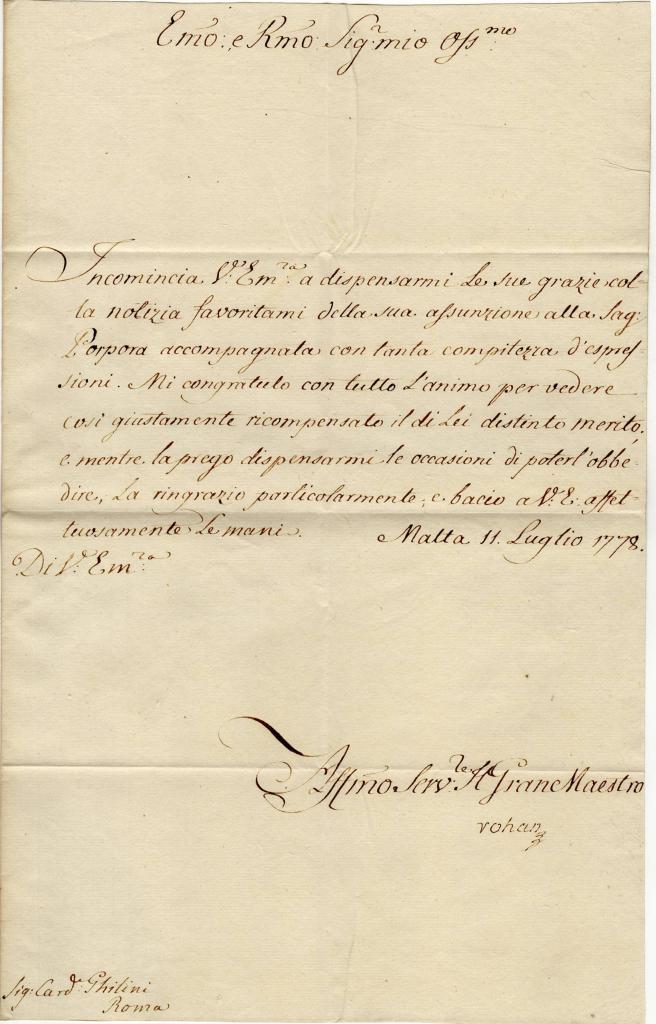 Emo: e Rmo: Sigr: mio Ossmo:
Incomincia V: Emra: a dispensarmi le sue grazie col-
la notizia favoritami della sua assunzione alla Sag:
Porpora accompagnata con tanta compitezza d'espres-
sioni. Mi congratulo con tutto l'animo per vedere
così giustamente ricompensato il di Lei distinto merito;
e mentre la prego dispensarmi le occasioni di poterl'obbe-
dire, La ringrazio particolarmente, e bacio a V: E: affet-
tuosamente le mani. Malta 11. Luglio 1778.
Di V: Emra:
Affmo Servre: Il Gran Maestro
rohan
Sig: Card: Ghilini
Roma